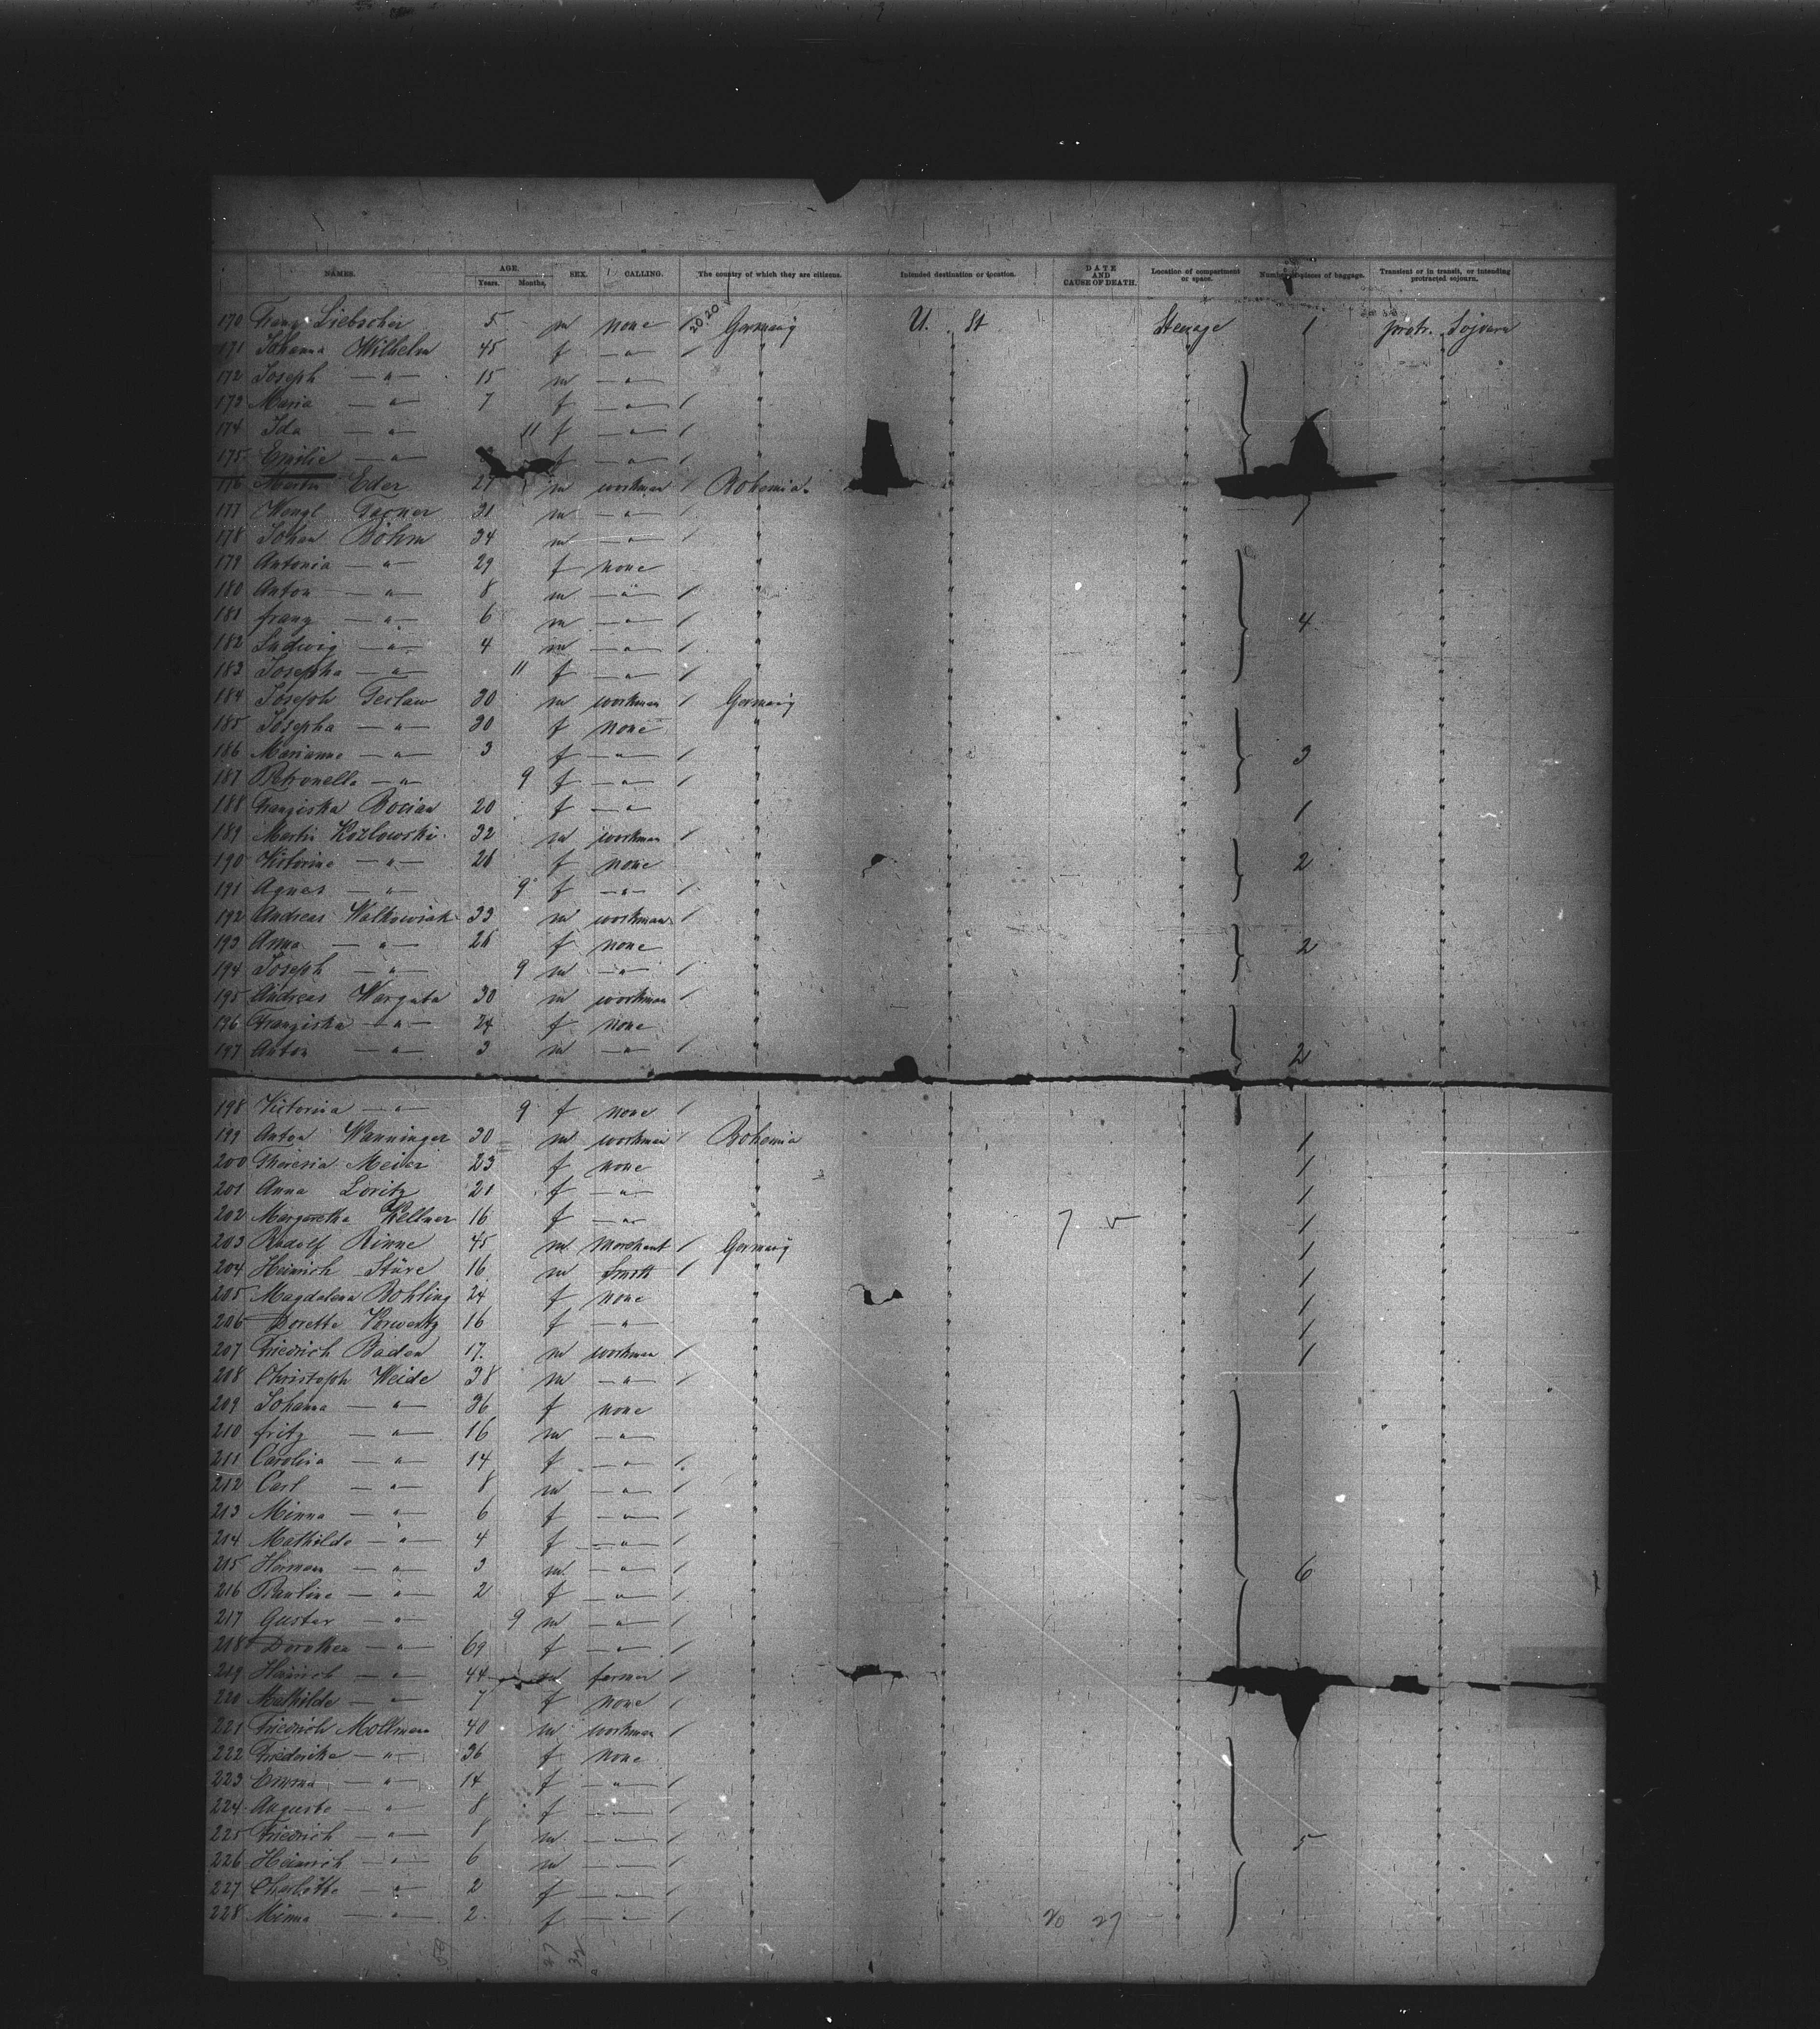 NAMES. AGE. SEX. CALLING. The country of which they are citizens. Intended destination or location. DATE AND CAUSE OF DEATH. Location of compartment or space. Number of pieces of baggage. Transient or in transit, or intending protracted sojourn.
Years. Months.
170 Franz Liebscher 5 m none / 20 20 Germany U. St Steerage 1 protr. Sojourn
171 Johanna Wilhelm 45 f — " — / "
172 Joseph — " — 15 m — " —
173 Maria — " — 7 f — " — /
174 Ida — " — 11 f — " — /
175 Emilie — " — f — " — /
176 Martin Eder 27 m workman / Bohemia.
177 Wenzl 31 m — " — / 1
178 Johan Böhm 34 m — " — /
179 Antonia — " — 29 f none
180 Anton — " — 8 m — " — /
181 franz — " — 6 m — " — / 4
182 Ludwig — " — 4 m — " — /
183 Josepha — " — 11 f — " — /
184 Joseph Teslaw 30 m workman / Germany
185 Josepha — " — 30 f none
186 Marianna — " — 3 f — " — / 3
187 Petronella — " — 9 f — " — /
188 Franziska Bocian 20 f — " — 1
189 Martin Kozlowski 32 m workman /
190 Victorine — " — 26 f none 2
191 Agnes — " — 9 f — " — /
192 Andreas Walkowiak 33 m workman /
193 Anna — " — 26 f none 2
194 Joseph — " — 9 m — " — /
195 Andreas Wargula 30 m workman /
196 Franziska — " — 24 f none
197 Anton — " — 3 m — " — / 2
198 Victoria — " — 9 f none /
199 Anton Wanninger 30 m workman / Bohemia 1
200 Theresia Meier 23 f none 1
201 Anna Loritz 21 f — " — 1
202 Margaretha Kellner 16 f — " — 1
203 Rudolf Rinne 45 m Merchant / Germany 1
204 Heinrich Stüve 16 m Smith / 1
205 Magdalena Bohling 24 f none 1
206 Dorette Vorwertz 16 f — " — 1
207 Friedrich Baden 17. m workman / 1
208 Christoph Weide 38 m — " — /
209 Johanna — " — 36 f none
210 fritz — " — 16 m — " —
211 Carolina — " — 14 f — " — /
212 Carl — " — 8 m — " — /
213 Minna — " — 6 f — " — /
214 Mathilde — " — 4 f — " — /
215 Herman — " — 3 m — " — / 6
216 Pauline — " — 2 f — " — /
217 Gustav — " — 9 m — " — /
218 Dorothea — " — 69 f — " — /
219 Heinrich — " — 44 m farmer /
220 Mathilde — " — 7 f none /
221 Friedrich Mollman 40 m workman /
222 Friederike — " — 36 f none
223 Emma — " — 14 f — " — /
224 Auguste — " — 8 f — " — /
225 Friedrich — " — 8 m — " — / 5
226 Heinrich — " — 6 m — " — /
227 Charlotte — " — 2 f — " — /
228 Minna — " — 2. f — " — / 20 27